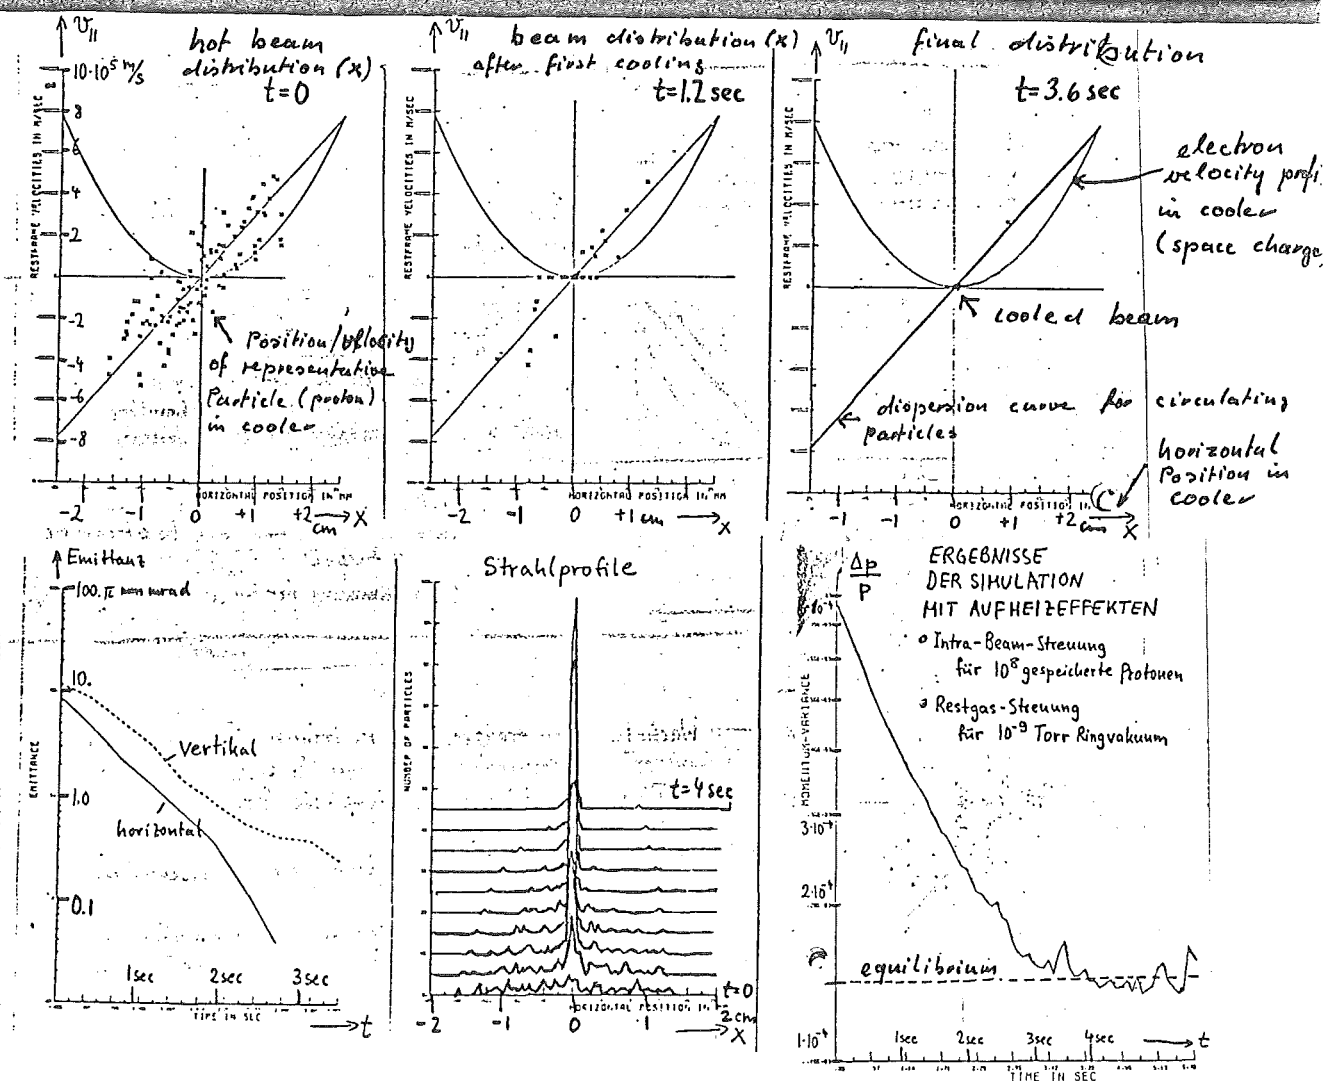 v||
hot beam
distribution (x)
t=0
10·10⁵ m/s
8
6
4
2
-2
-4
-6
-8
RESTFRAME VELOCITIES IN M/SEC
Position/velocity
of representative
Particle (proton)
in cooler
HORIZONTAL POSITION IN MM
-2
-1
0
+1
+2
cm
x
v||
beam distribution (x)
after first cooling
t=1.2 sec
RESTFRAME VELOCITIES IN M/SEC
HORIZONTAL POSITION IN MM
-2
-1
0
+1 cm
x
v||
final distribution
t=3.6 sec
RESTFRAME VELOCITIES IN M/SEC
electron
velocity profi
in cooler
(space charge
cooled beam
dispersion curve for circulating
particles
horizontal
Position in
cooler
HORIZONTAL POSITION IN
-1
-1
0
+1
+2 cm
x
Emittanz
100. π mm mrad
10.
1.0
0.1
EMITTANCE
vertikal
horizontal
1sec
2sec
3sec
TIME IN SEC
t
Strahlprofile
NUMBER OF PARTICLES
t=4sec
t=0
HORIZONTAL POSITION IN
-2
-1
0
1
2cm
x
Δp
p
ERGEBNISSE
DER SIMULATION
MIT AUFHEIZEFFEKTEN
Intra-Beam-Streuung
für 10⁸ gespeicherte Protonen
Restgas-Streuung
für 10⁻⁹ Torr Ringvakuum
MOMENTUM-VARIANCE
3·10⁻⁴
2·10⁻⁴
equilibrium
1·10⁻⁴
1sec
2sec
3sec
4sec
t
TIME IN SEC